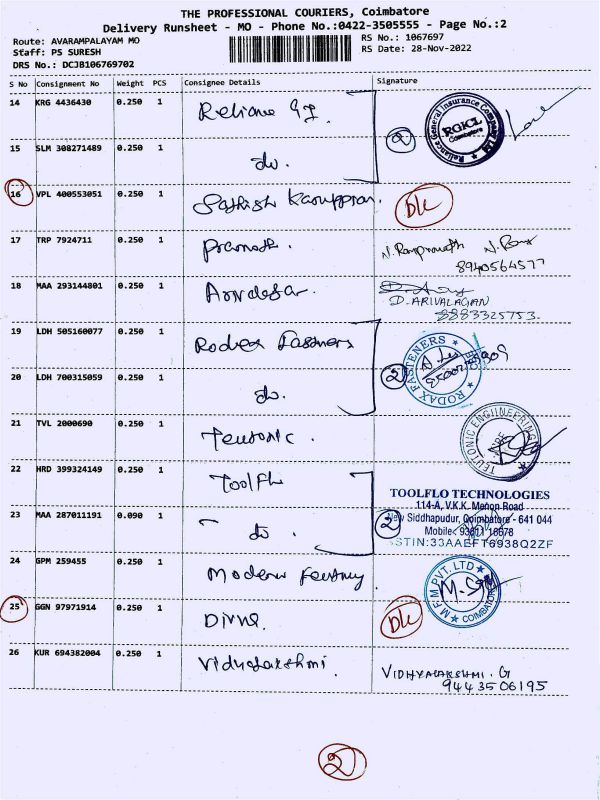 THE PROFESSIONAL COURIERS, Coimbatore
Delivery Runsheet - MO - Phone No.:0422-3505555 - Page No.:2
Route: AVARAMPALAYAM MO
RS No.: 1067697
Staff: PS SURESH
RS Date: 28-Nov-2022
DRS No.: DCJB106769702
S No Consignment No Weight PCS Consignee Details Signature
14 KRG 4436430 0.250 1 Reliance GI. 2
Reliance General Insurance Company Ltd
RGICL
Coimbatore
15 SLM 308271489 0.250 1 do.
16 VPL 400553051 0.250 1 Sathish Karuppan.
17 TRP 7924711 0.250 1 Pramoth. N. Ramprasath
8940564577
18 MAA 293144801 0.250 1
D. ARIVALAGAN
8883325753.
19 LDH 505160077 0.250 1 Rodex Fastners
RODAX FASTENERS
20 LDH 700315059 0.250 1 do. 2
21 TVL 2000690 0.250 1 Teutonic.
TEUTONIC ENGIINEERING
22 HRD 399324149 0.250 1 Toolflo
TOOLFLO TECHNOLOGIES
114-A, V.K.K. Menon Road
23 MAA 287011191 0.090 1 do. 2
New Siddhapudur, Coimbatore - 641 044
Mobile: 16678
GSTIN:33AAEFT6938Q2ZF
24 GPM 259455 0.250 1 Modern
M F M PVT. LTD
COIMBATORE
25 GGN 97971914 0.250 1
26 KUR 694382004 0.250 1 Vidyalakshmi. VIDHYALAKSHMI. G
9443506195
2